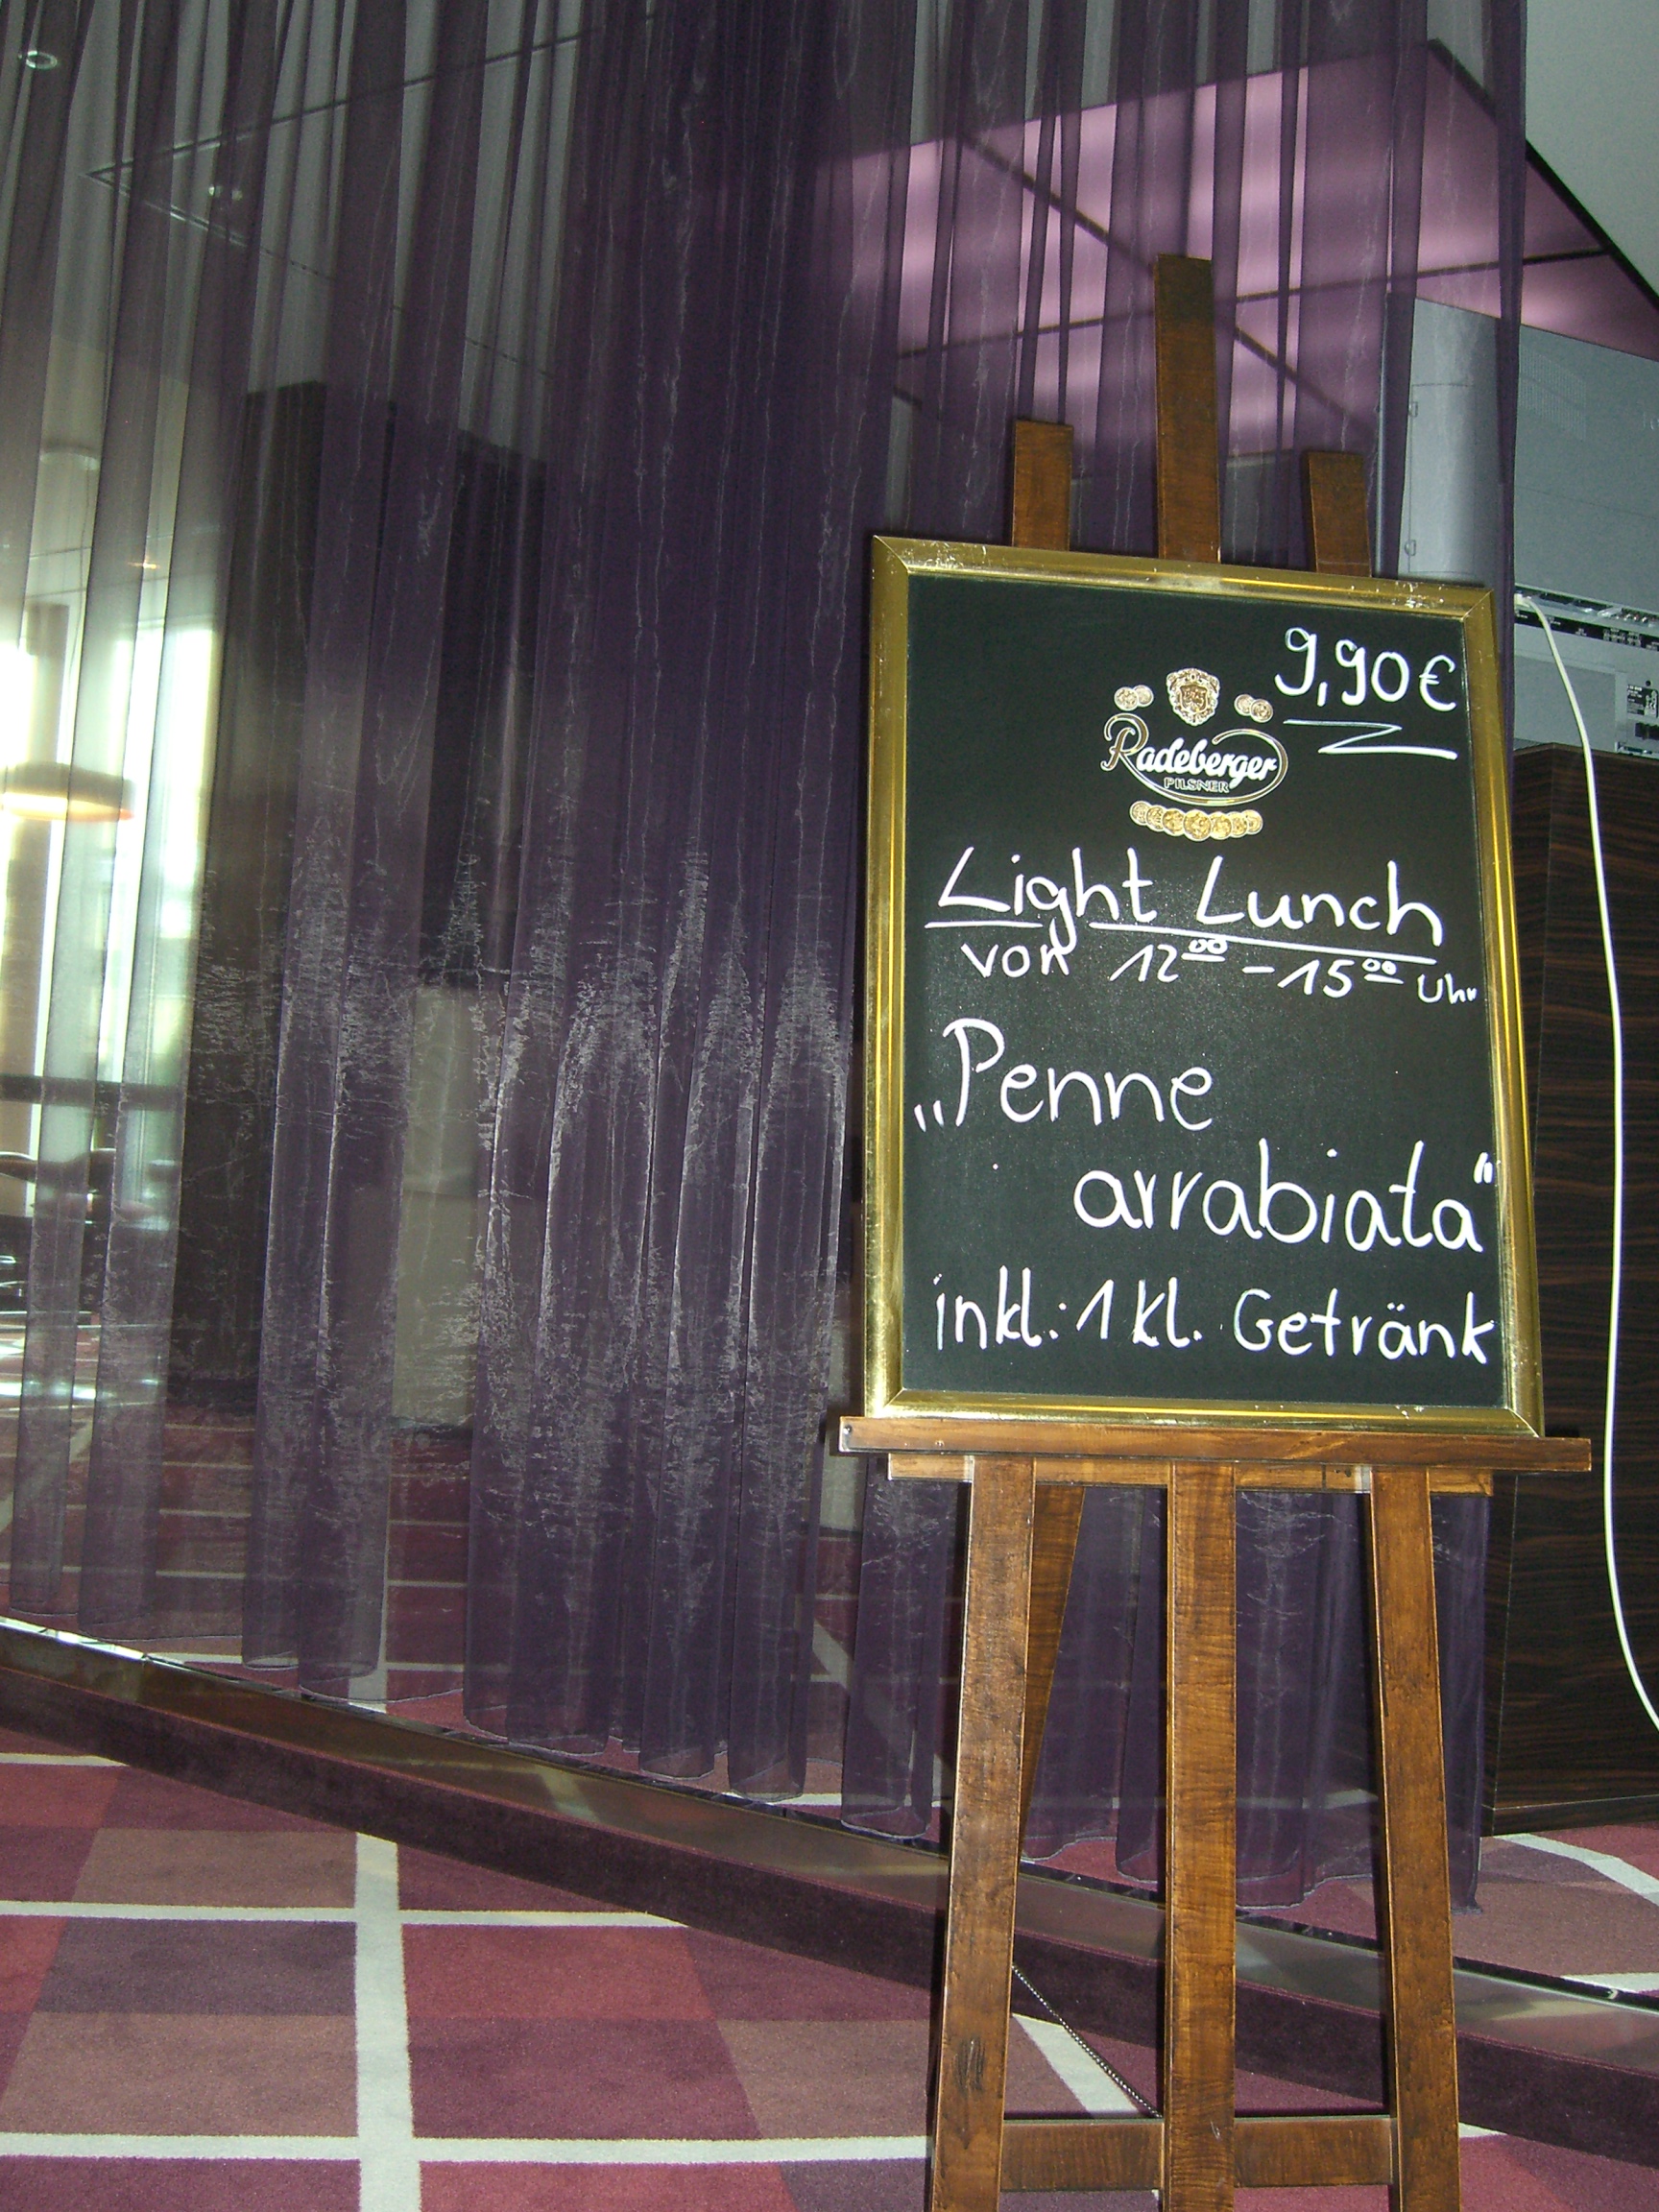 9,90€
Radeberger
PILSNER
Light Lunch
von 12⁰⁰ - 15⁰⁰ Uhr
„Penne
arrabiata“
inkl.: 1 kl. Getränk